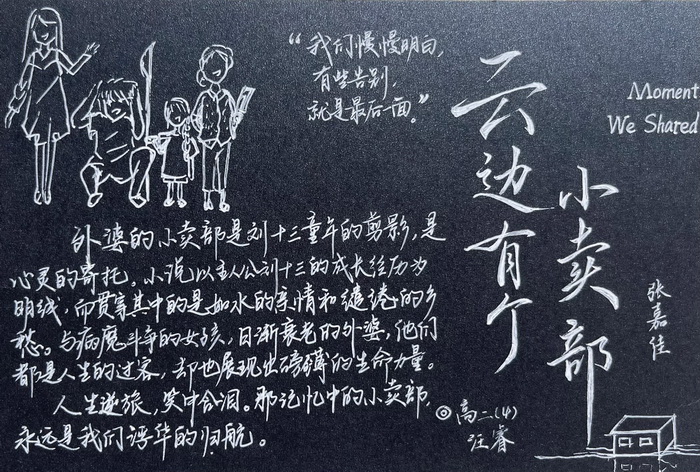 “我们慢慢明白，
有些告别，
就是最后一面。”
云边有个
小卖部
Moment
We Shared
张嘉佳
外婆的小卖部是刘十三童年的剪影，是
心灵的寄托。小说以主人公刘十三的成长经历为
明线，而贯穿其中的是如水的亲情和缱绻的乡
愁。与病魔斗争的女孩，日渐衰老的外婆，他们
都是人生的过客，却也展现出磅礴的生命力量。
人生逆旅，笑中含泪。那记忆中的小卖部，
永远是我们的归航。
◎高二(4)
汪睿